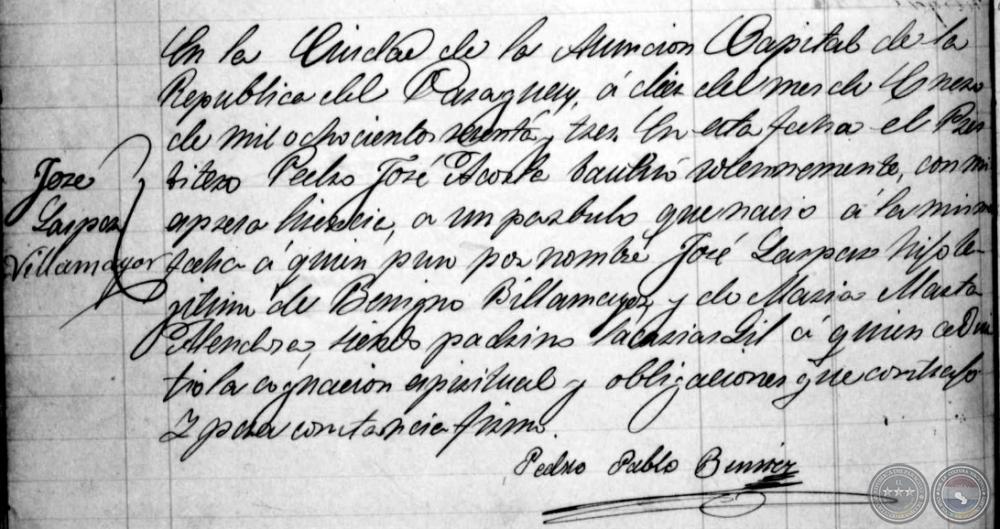 Jose
Gaspar
Villamayor
En la Ciudad de la Asuncion Capital de la
Republica del Paraguay, á diez del mes de Enero
de mil ochocientos setentá y tres. En esta fecha el Pres
bitero Pedro José Acosta bautizó solemnemente, con mi
apresa licencia, a un parbulo que nacio á la misma
fecha á quien puso por nombre José Gaspar hijo le
gitimo de Benigno Billamayor, y de Maria Marta
Mendosa, siendo padrino Gil á quien advir
tio la cognacion espiritual y obligaciones que contrajo
Y para constancia firmo.
Pedro Pablo Benitez